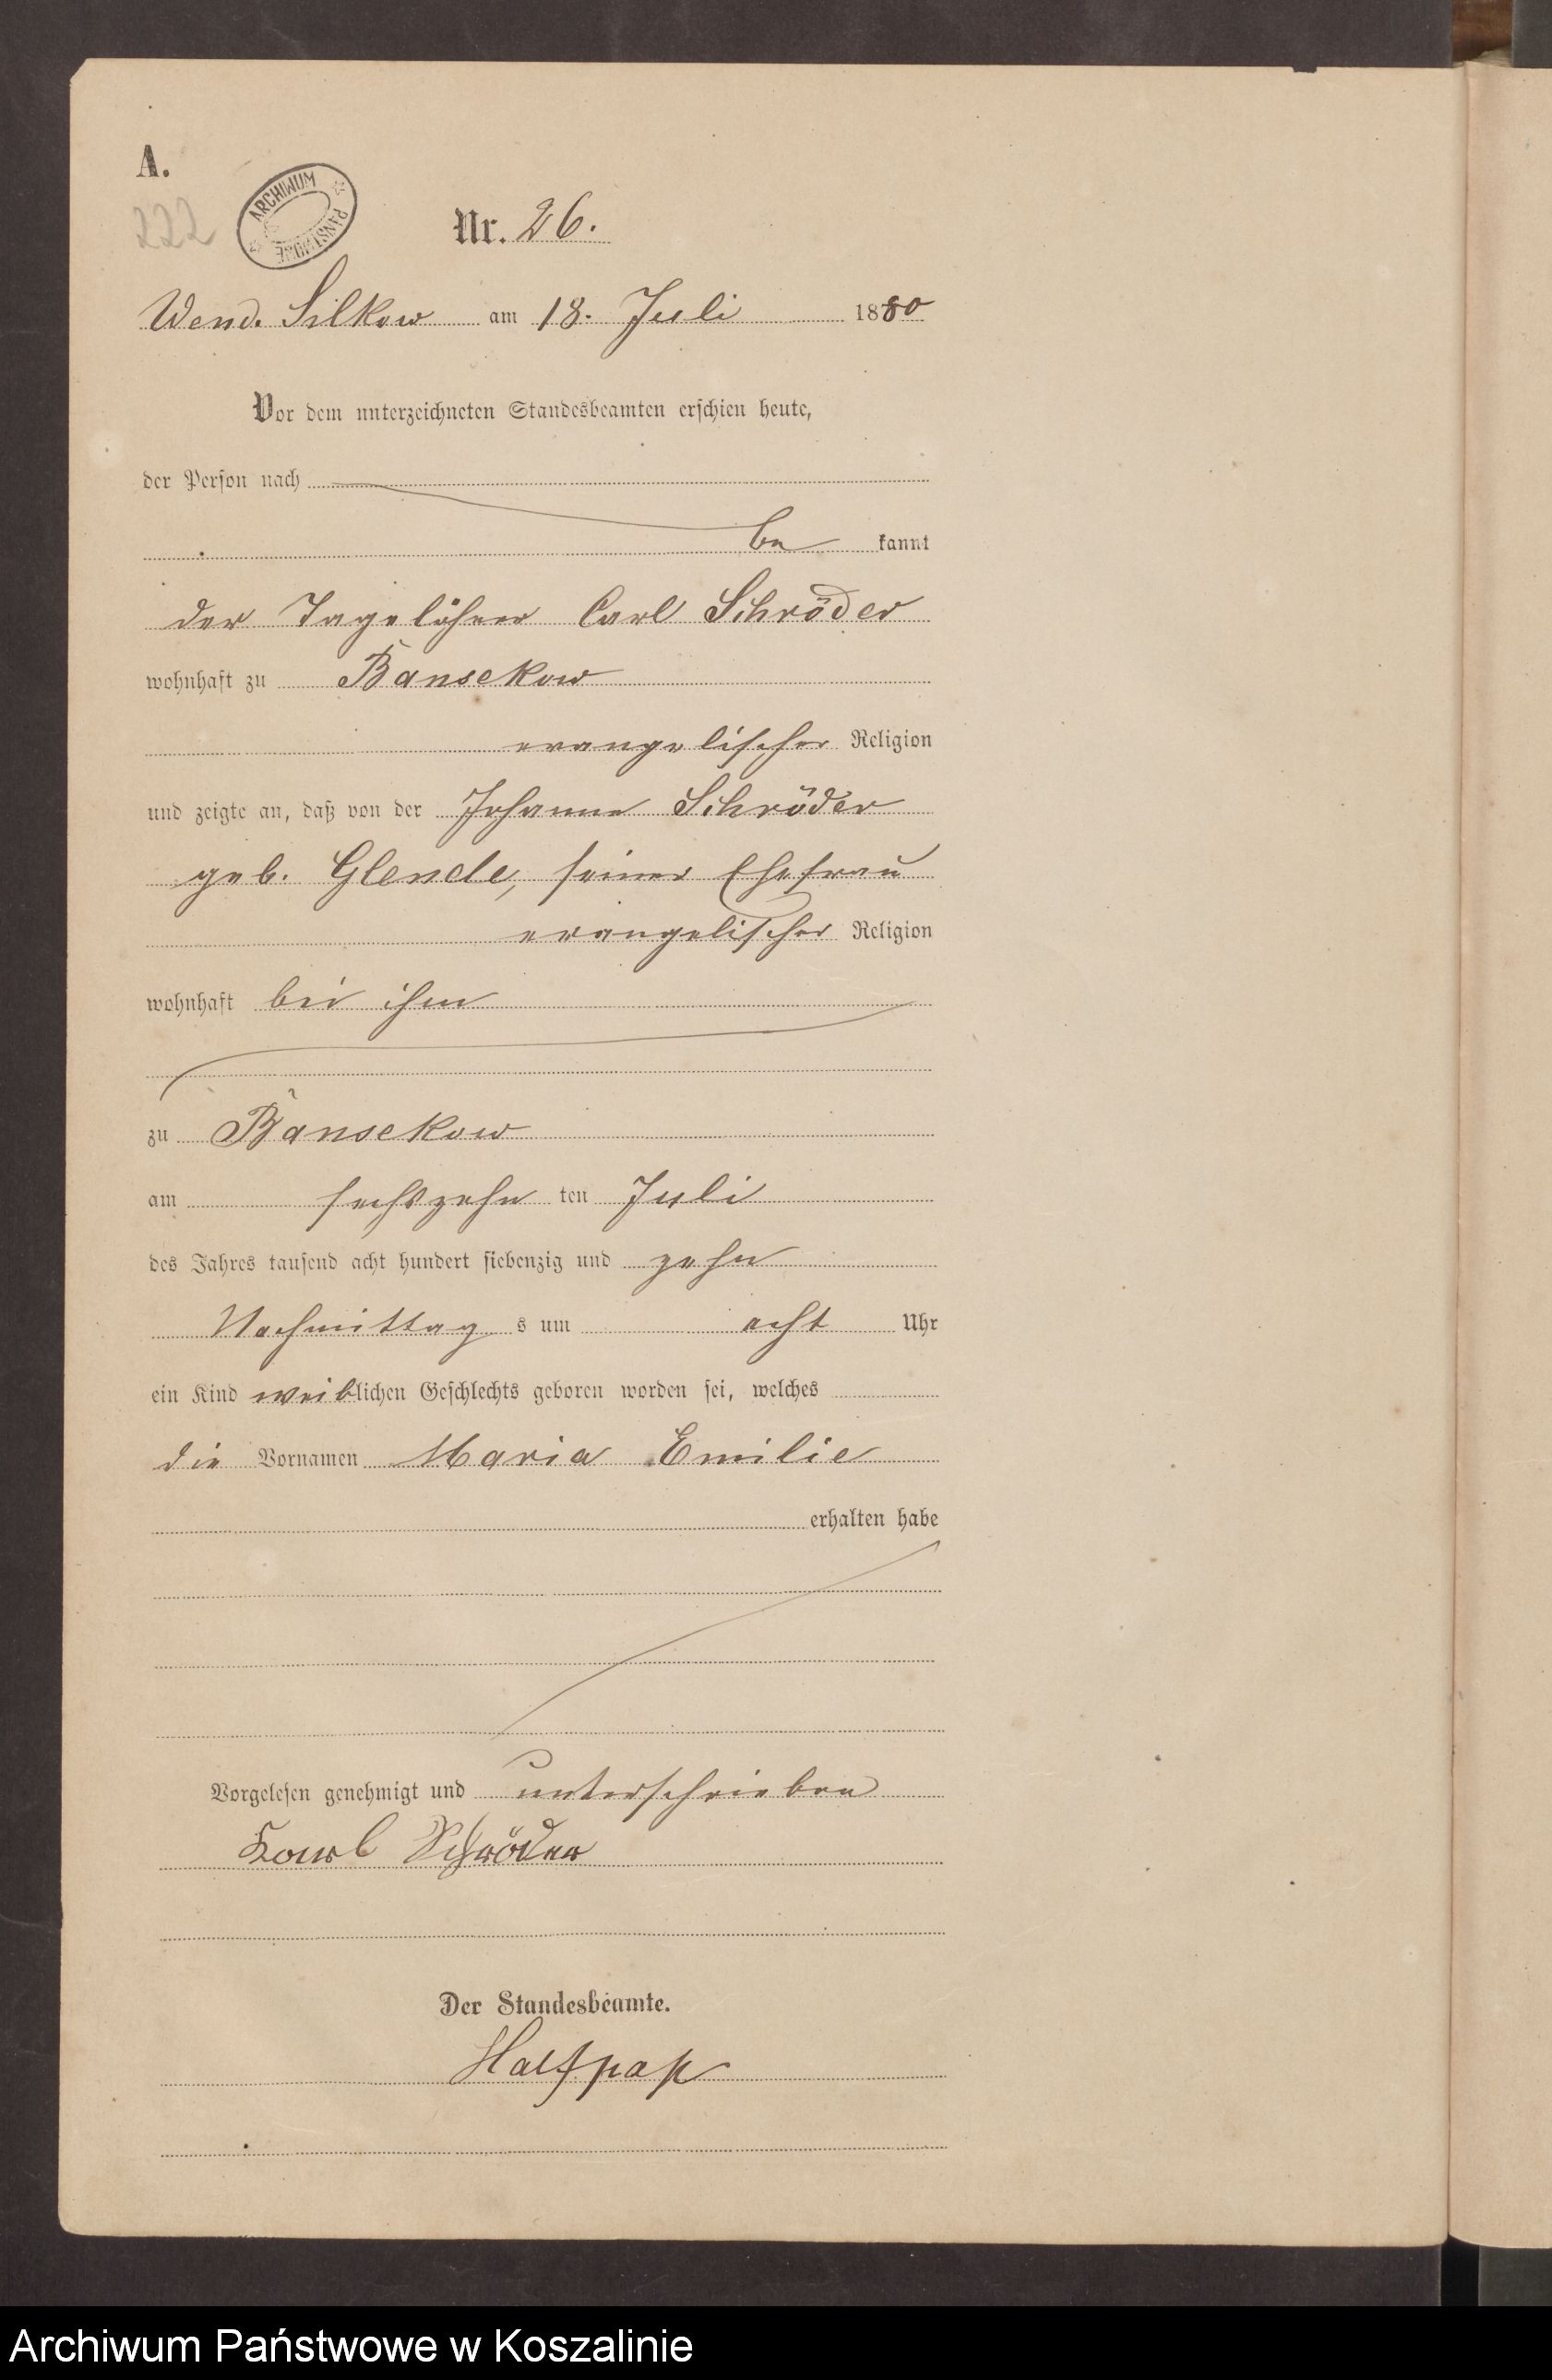 A.
222
ARCHIWUM PAŃSTWOWE
Nr. 26.
Wend. Silkow am 18. Juli 1880
Vor dem unterzeichneten Standesbeamten erschien heute,
der Person nach
be kannt
der Tagelöhner Carl Schröder
wohnhaft zu Bansekow
evangelischer Religion
und zeigte an, daß von der Johanne Schröder
geb. Glende, seiner Ehefrau
evangelischer Religion
wohnhaft bei ihm
zu Bansekow
am sechszehn ten Juli
des Jahres tausend acht hundert siebenzig und zehn
Nachmittag s um acht Uhr
ein Kind weiblichen Geschlechts geboren worden sei, welches
die Vornamen Maria Emilie
erhalten habe
Vorgelesen genehmigt und unterschrieben
Karl Schröder
Der Standesbeamte.
Halfpap
Archiwum Państwowe w Koszalinie